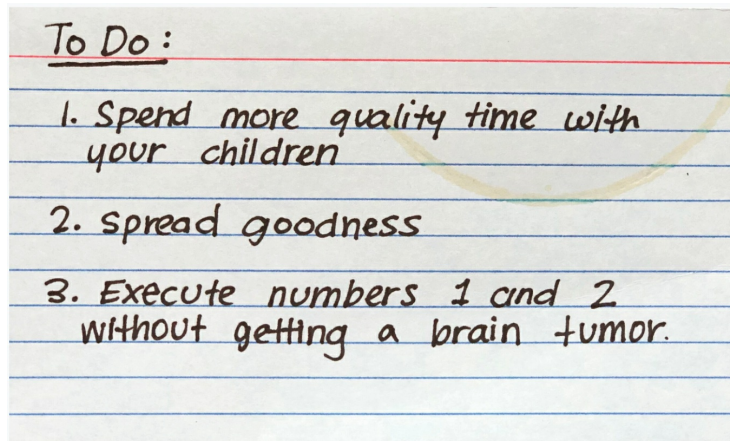 To Do:
1. Spend more quality time with
your children
2. spread goodness
3. Execute numbers 1 and 2
without getting a brain tumor.